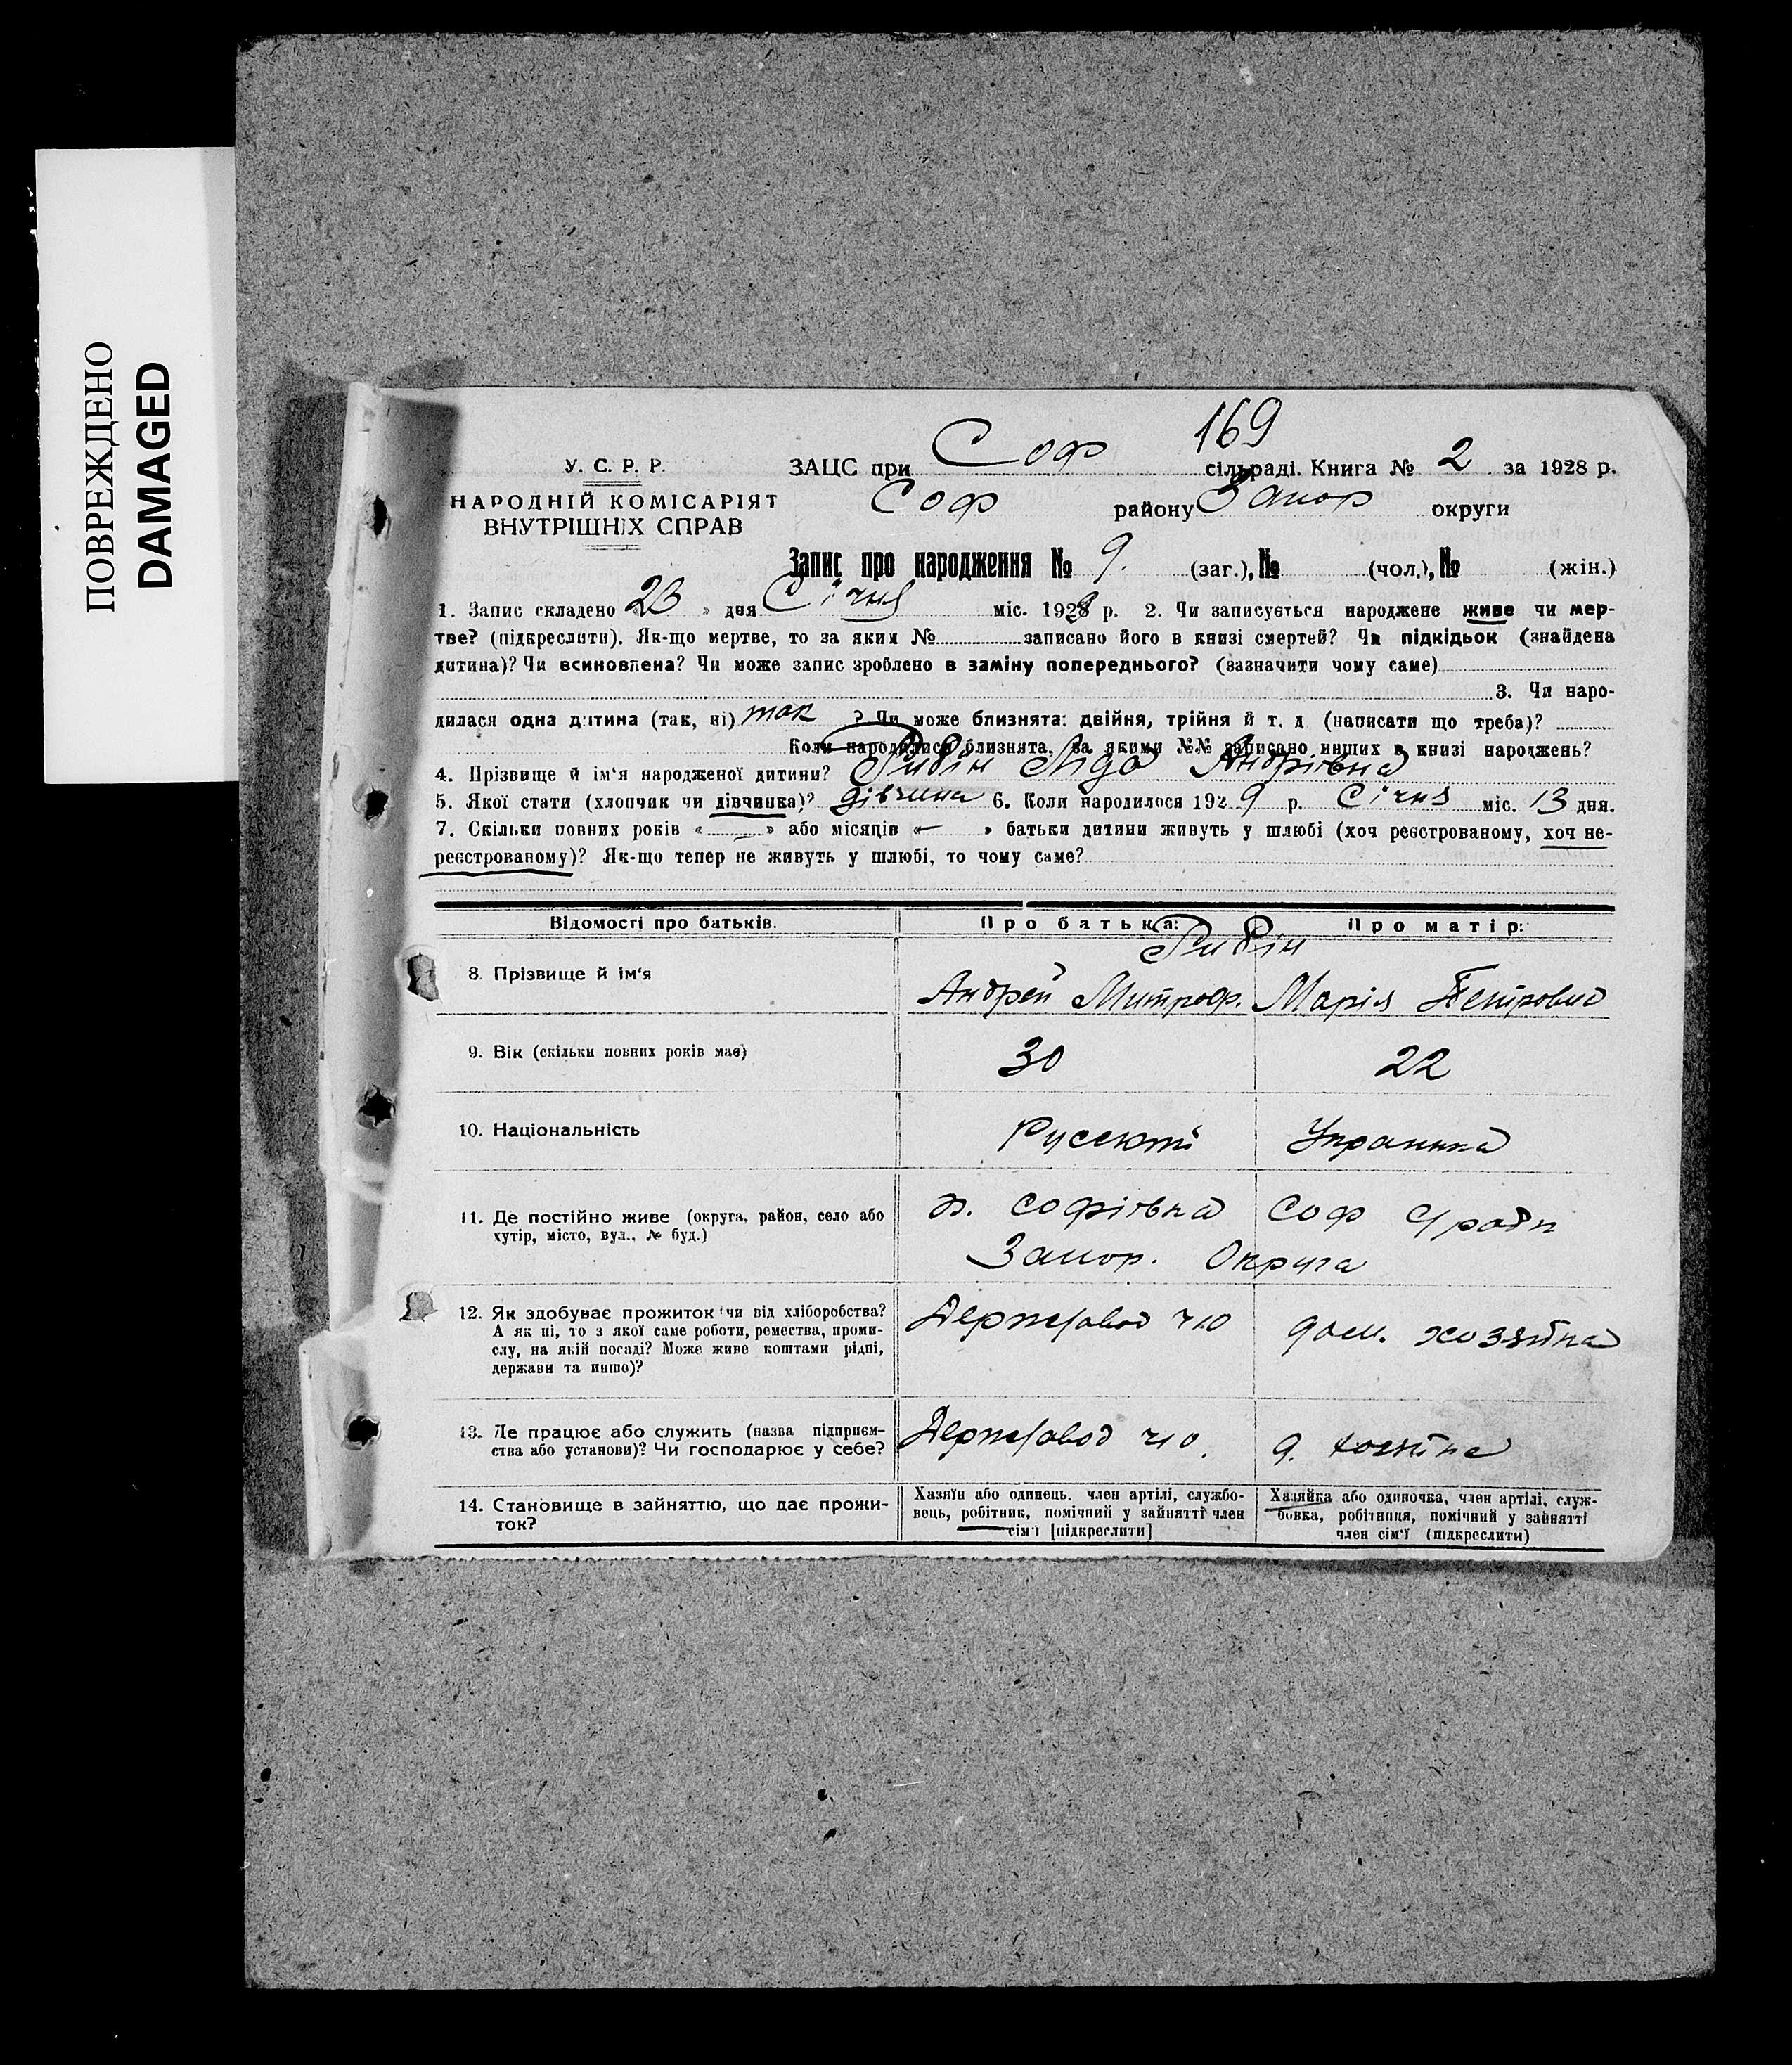 ПОВРЕЖДЕНО
DAMAGED
169
У. С. Р. Р.
НАРОДНІЙ КОМІСАРІЯТ
ВНУТРІШНІХ СПРАВ
ЗАЦС при Соф сільраді. Книга № 2 за 1928 р.
Соф району Запор округи
Запис про народження № 9. (заг.), № (чол.), № (жін.)
1. Запис складено « 23 » дня Січня міс. 1929 р. 2. Чи записується народжене живе чи мер-
тве? (підкреслити). Як-що мертве, то за яким № записано його в книзі смертей? Чи підкідьок (знайдена
дитина)? Чи всиновлена? Чи може запис зроблено в заміну попереднього? (зазначити чому саме)
3. Чи наро-
дилася одна дитина (так, ні) так ? Чи може близнята: двійня, трійня й т. д (написати що треба)?
Коли народилися близнята, за якими №№ записано инших в книзі народжень?
4. Прізвище й ім'я народженої дитини? Рибін Ліда Андріівна
5. Якої стати (хлопчик чи дівчинка)? дівчина 6. Коли народилося 1929 р. Січня міс. 13 дня.
7. Скільки повних років « — » або місяців « — » батьки дитини живуть у шлюбі (хоч реєстрованому, хоч не-
реєстрованому)? Як-що тепер не живуть у шлюбі, то чому саме?
Відомості про батьків. Про батька: Про матір:
Рибін
8. Прізвище й ім'я Андрей Митроф. Марія Петровна
9. Вік (скільки повних років має) 30 22
10. Національність Русский Украинка
11. Де постійно живе (округа, район, село або
хутір, місто, вул., № буд.)
х. Софіівна Соф району
Запор. Округа
12. Як здобуває прожиток чи від хліборобства?
А як ні, то з якої саме роботи, ремества, проми-
слу, на якій посаді? Може живе коштами рідні,
держави та инше)?
дом. хозяйка
13. Де працює або служить (назва підприєм-
ства або установи)? Чи господарює у себе?
д. хозяйка
14. Становище в зайняттю, що дає прожи-
ток?
Хазяїн або одинець, член артілі, службо-
вець, робітник, помічний у зайнятті член
сім'ї [підкреслити]
Хазяйка або одиночка, член артілі, служ-
бовка, робітниця, помічний у зайнятті
член сім'ї (підкреслити)